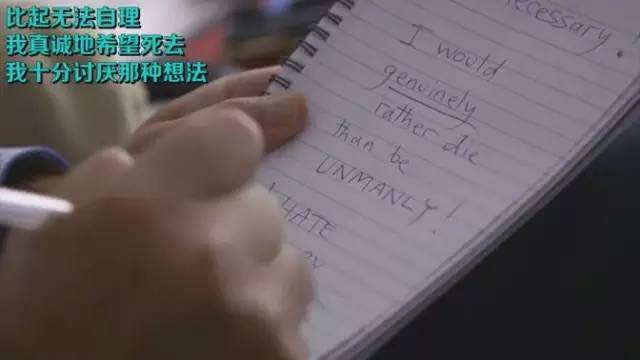 比起无法自理
我真诚地希望死去
我十分讨厌那种想法
necessary.
I would
genuinely
rather die
than be
UNMANLY!
HATE